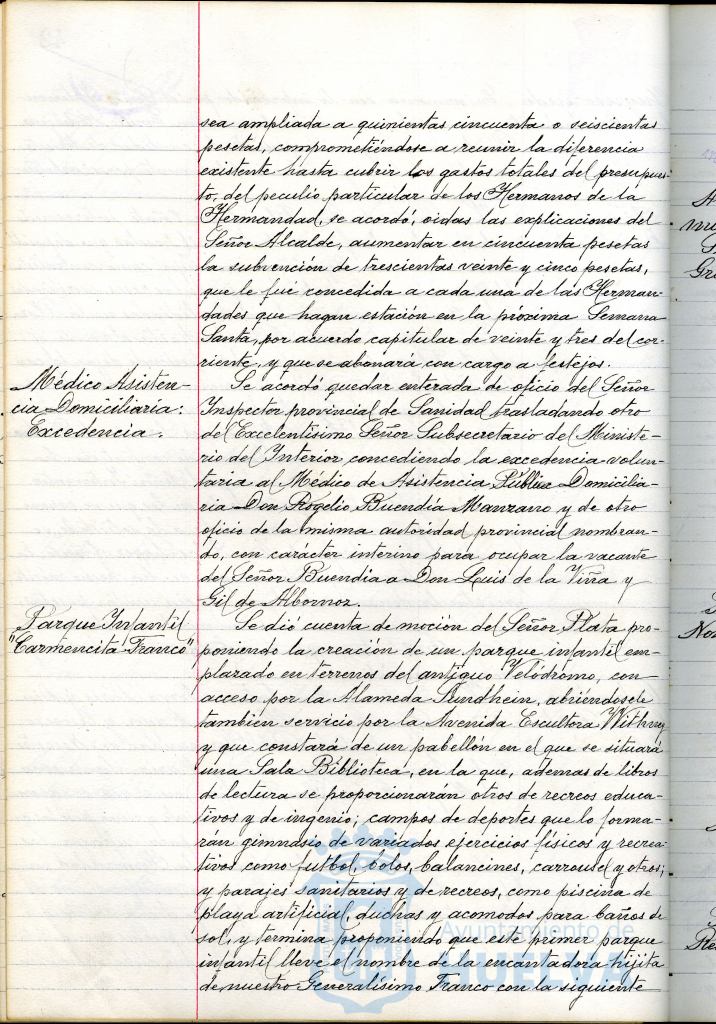 sea ampliada a quinientas cincuenta o seiscientas
pesetas, comprometiéndose a reunir la diferencia
existente hasta cubrir los gastos totales del presupues-
to, del peculio particular de los Hermanos de la
Hermandad, se acordó, oidas las explicaciones del
Señor Alcalde, aumentar en cincuenta pesetas
la subvención de trescientas veinte y cinco pesetas,
que le fué concedida a cada una de las Herman-
dades que hagan estación en la próxima Semana
Santa, por acuerdo capitular de veinte y tres del cor-
riente, y que se abonará con cargo a festejos.
Médico Asisten-
cia Domiciliaria:
Excedencia.
Se acordó quedar enterada de oficio del Señor
Inspector provincial de Sanidad trasladando otro
del Excelentísimo Señor Subsecretario del Ministe-
rio del Interior concediendo la excedencia volun-
taria al Médico de Asistencia Pública Domicilia-
ria Don Rogelio Buendía Manzano y de otro
oficio de la misma autoridad provincial nombran-
do, con carácter interino para ocupar la vacante
del Señor Buendia a Don Luis de la Viña y
Gil de Albornoz.
Parque Infantil
"Carmencita Franco"
Se dió cuenta de moción del Señor Plata pro-
poniendo la creación de un parque infantil em-
plazado en terrenos del antiguo Velódromo, con
acceso por la Alameda Sundhein, abriéndosele
tambien servicio por la Avenida Escultora Withney
y que constará de un pabellón en el que se situará
una Sala Biblioteca, en la que, además de libros
de lectura se proporcionarán otros de recreos educa-
tivos y de ingenio; campos de deportes que lo forma-
rán gimnasio de variados ejercicios físicos y recrea-
tivos como futbol, bolos, balancines, carrousel y otros;
y parajes sanitarios y de recreos, como piscina de
playa artificial, duchas y acomodos para baños de
sol, y termina proponiendo que este primer parque
infantil lleve el nombre de la encantadora hijita
de nuestro Generalísimo Franco con la siguiente
Ayuntamiento de
HUELVA